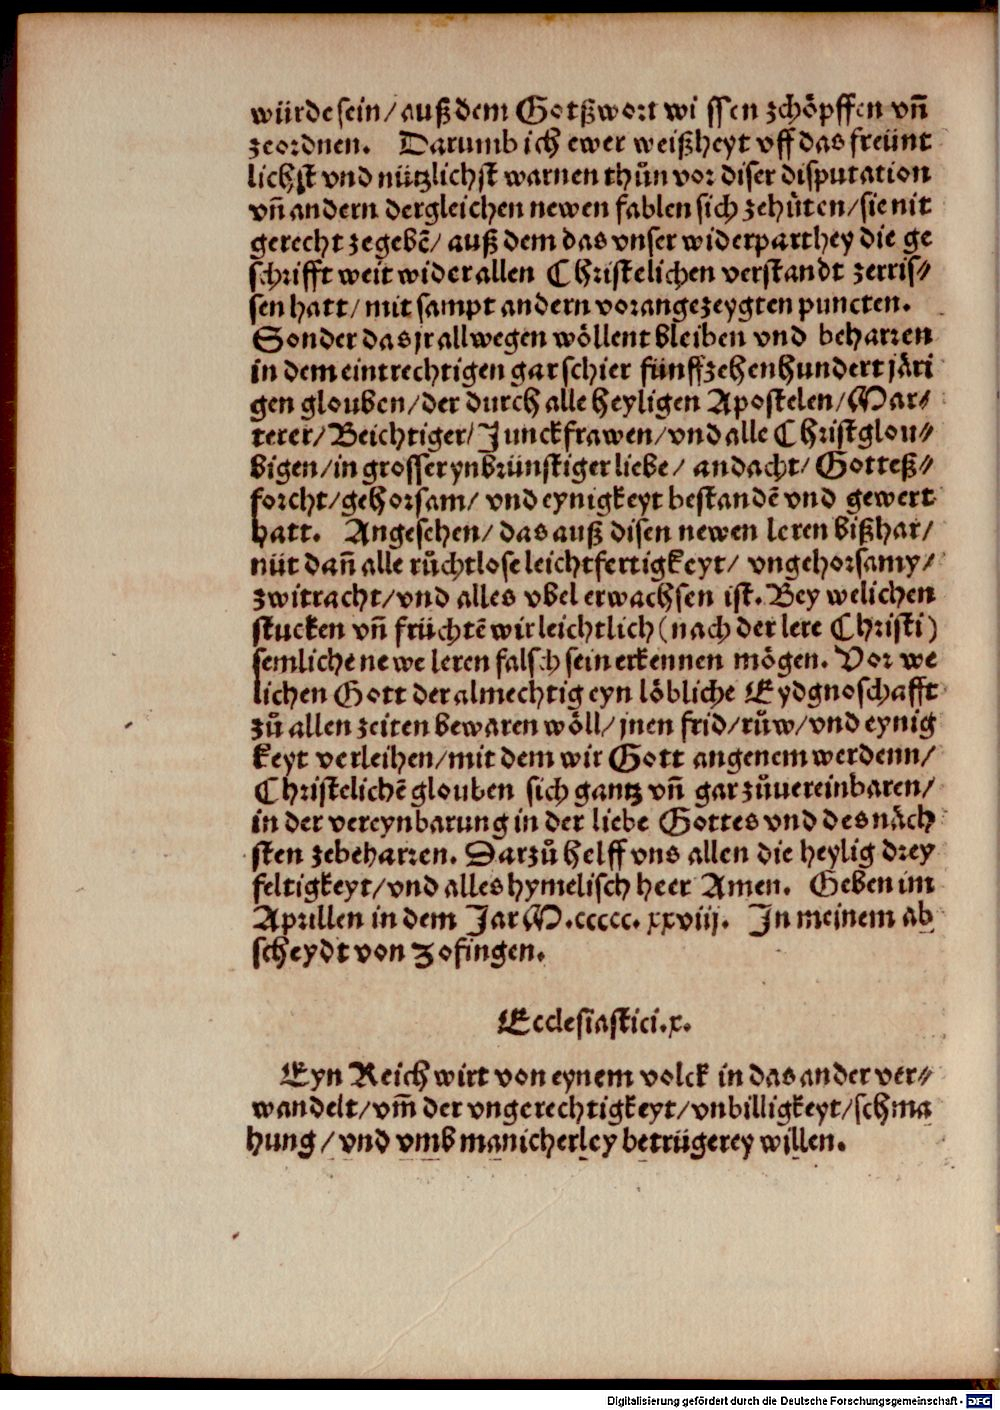 würde sein/ auß dem Gotßwort wissen zchöpffen vñ
zeordnen. Darumb ich ewer weißheyt vff das freünt
lichst vnd nützlichst warnen thůn vor diser disputation
vñ andern dergleichen newen fablen sich zehůten/ sie nit
gerecht zegebẽ/ auß dem das vnser widerparthey die ge
schrifft weit wider allen Christelichen verstandt zerris⸗
sen hatt/ mit sampt andern vorangezeygten puncten.
Sonder das jr allwegen wöllent bleiben vnd beharren
in dem eintrechtigen gar schier fünffzehenhundert järi
gen glouben/ der durch alle heyligen Apostelen/ Mar⸗
terer/ Beichtiger/ Junckfrawen/ vnd alle Christglou⸗
bigen/ in grosser ynbrünstiger liebe/ andacht/ Gotteß⸗
forcht/ gehorsam/ vnd eynigkeyt bestandẽ vnd gewert
hatt. Angesehen/ das auß disen newen leren bißhar/
nüt dañ alle růchtlose leichtfertigkeyt/ vngehorsamy/
zwitracht/ vnd alles vbel erwachsen ist. Bey welichen
stucken vñ früchtẽ wir leichtlich (nach der lere Christi)
semliche newe leren falsch sein erkennen mögen. Vor we
lichen Gott der almechtig eyn löbliche Eydgnoschafft
zů allen zeiten bewaren wöll/ jnen frid/ růw/ vnd eynig
keyt verleihen/ mit dem wir Gott angenem werdenn/
Christelichẽ glouben sich gantz vñ gar zůuereinbaren/
in der vereynbarung in der liebe Gottes vnd des näch
sten zebeharren. Darzů helff vns allen die heylig drey
feltigkeyt/ vnd alles hymelisch heer Amen. Geben im
Aprillen in dem Jar M.ccccc.xxviij. In meinem ab
scheydt von Zofingen.
Ecclesiastici.x.
Eyn Reich wirt von eynem volck in das ander ver⸗
wandelt/ vm̃ der vngerechtigkeyt/ vnbilligkeyt/ schma
hung/ vnd vmb manicherley betrügerey willen.
Digitalisierung gefördert durch die Deutsche Forschungsgemeinschaft - DFG